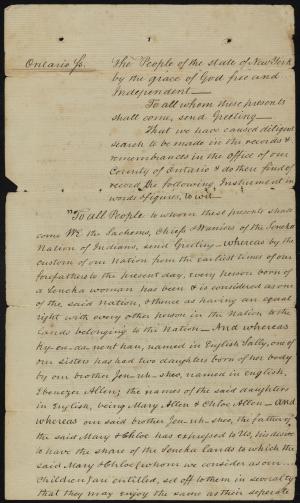 Ontario Ss. The People of the state of New York
by the grace of God free and
Independent—
To all whom these presents
shall come, send Greeting—
That we have caused diligent
search to be made in the records &
remembrances in the office of our
County of Ontario & do there find of
record the following Instrument in
words & figures, to wit
"To all People to whom these presents shall
come We the Sachems, Chiefs & Warriors of the Seneka
Nation of Indians, send Greeting—whereas by the
custom of our Nation from the earliest times of our
forefathers to the present day, every person born of
a Seneka woman has been & is considered as one
of the said Nation, & thence as having an equal
right with every other person in the Nation to the
lands belonging to the Nation—And whereas
Ky-en-da-nent hau, named in English Sally, one of
our sisters has had two daughters born of her body
by our brother Jen-uh-sheo, named in english,
Ebenezer Allen; the names of the said daughters
in English, being Mary Allen & Chloe Allen—and
whereas our said brother Jen-uh-sheo, the father of
the said Mary & Chloe has expressed to Us, his desire
to have the share of the Seneka lands to which the
said Mary & Chloe (whom we consider as our
Children) are entitled, set off to them in severalty
that they may enjoy the same as their seperate